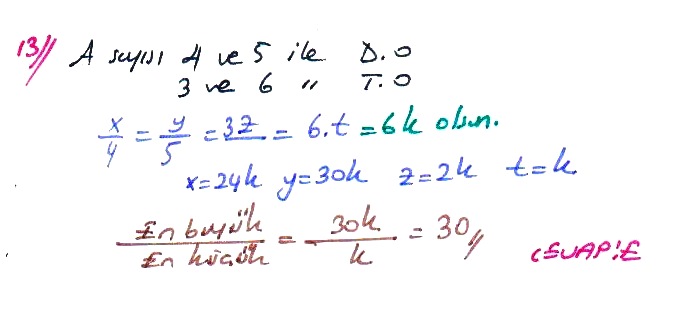 13// A sayısı 4 ve 5 ile D.O
3 ve 6 " T.O
x/4 = y/5 = 3z = 6.t = 6k olsun.
x=24k y=30k z=2k t=k
En büyük / En küçük = 30k / k = 30//
CEVAP:E